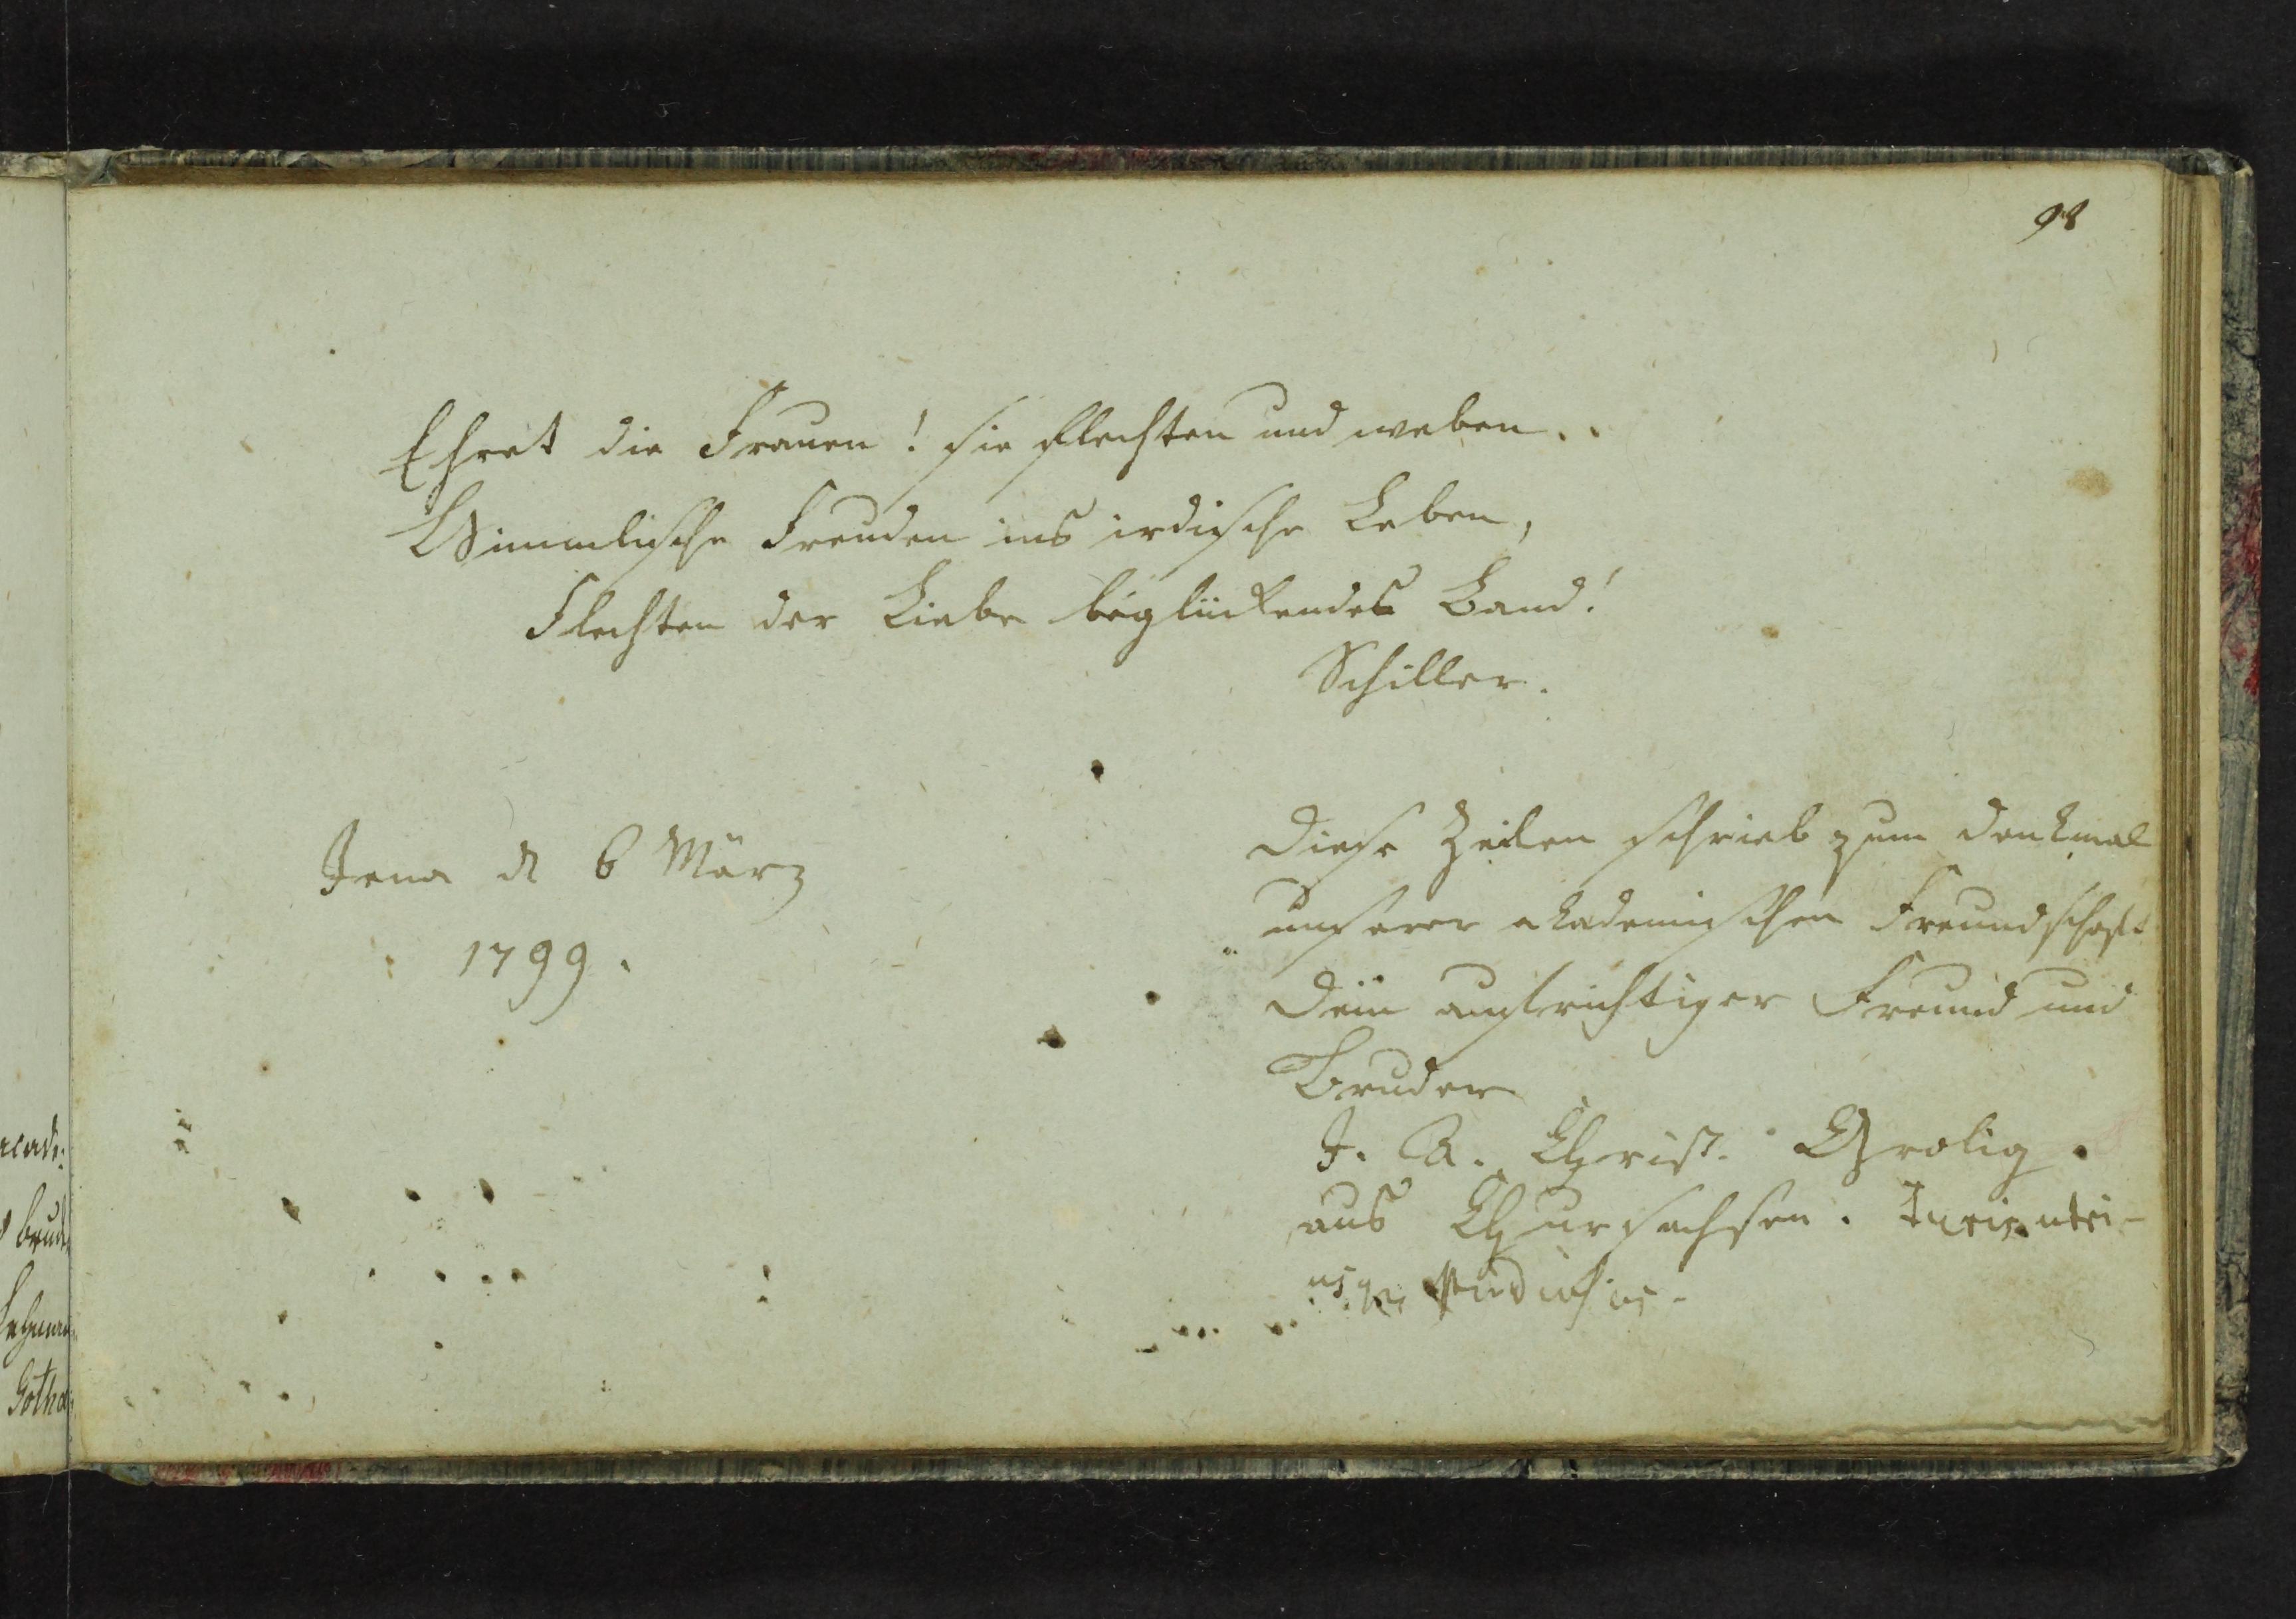 98
Ehret die Frauen! sie flechten und weben..
Himmlische Freuden ins irdische Leben,
Flechten der Liebe beglückendes Band!
Schiller.
Jena d 6 März
1799.
Diese Zeilen schrieb zum Denkmal
unserer akademischen Freundschaft
Dein aufrichtiger Freund und
Bruder
J. A. Christ. Grolig.
aus Chursachsen.
acade:
Brude
Gotha